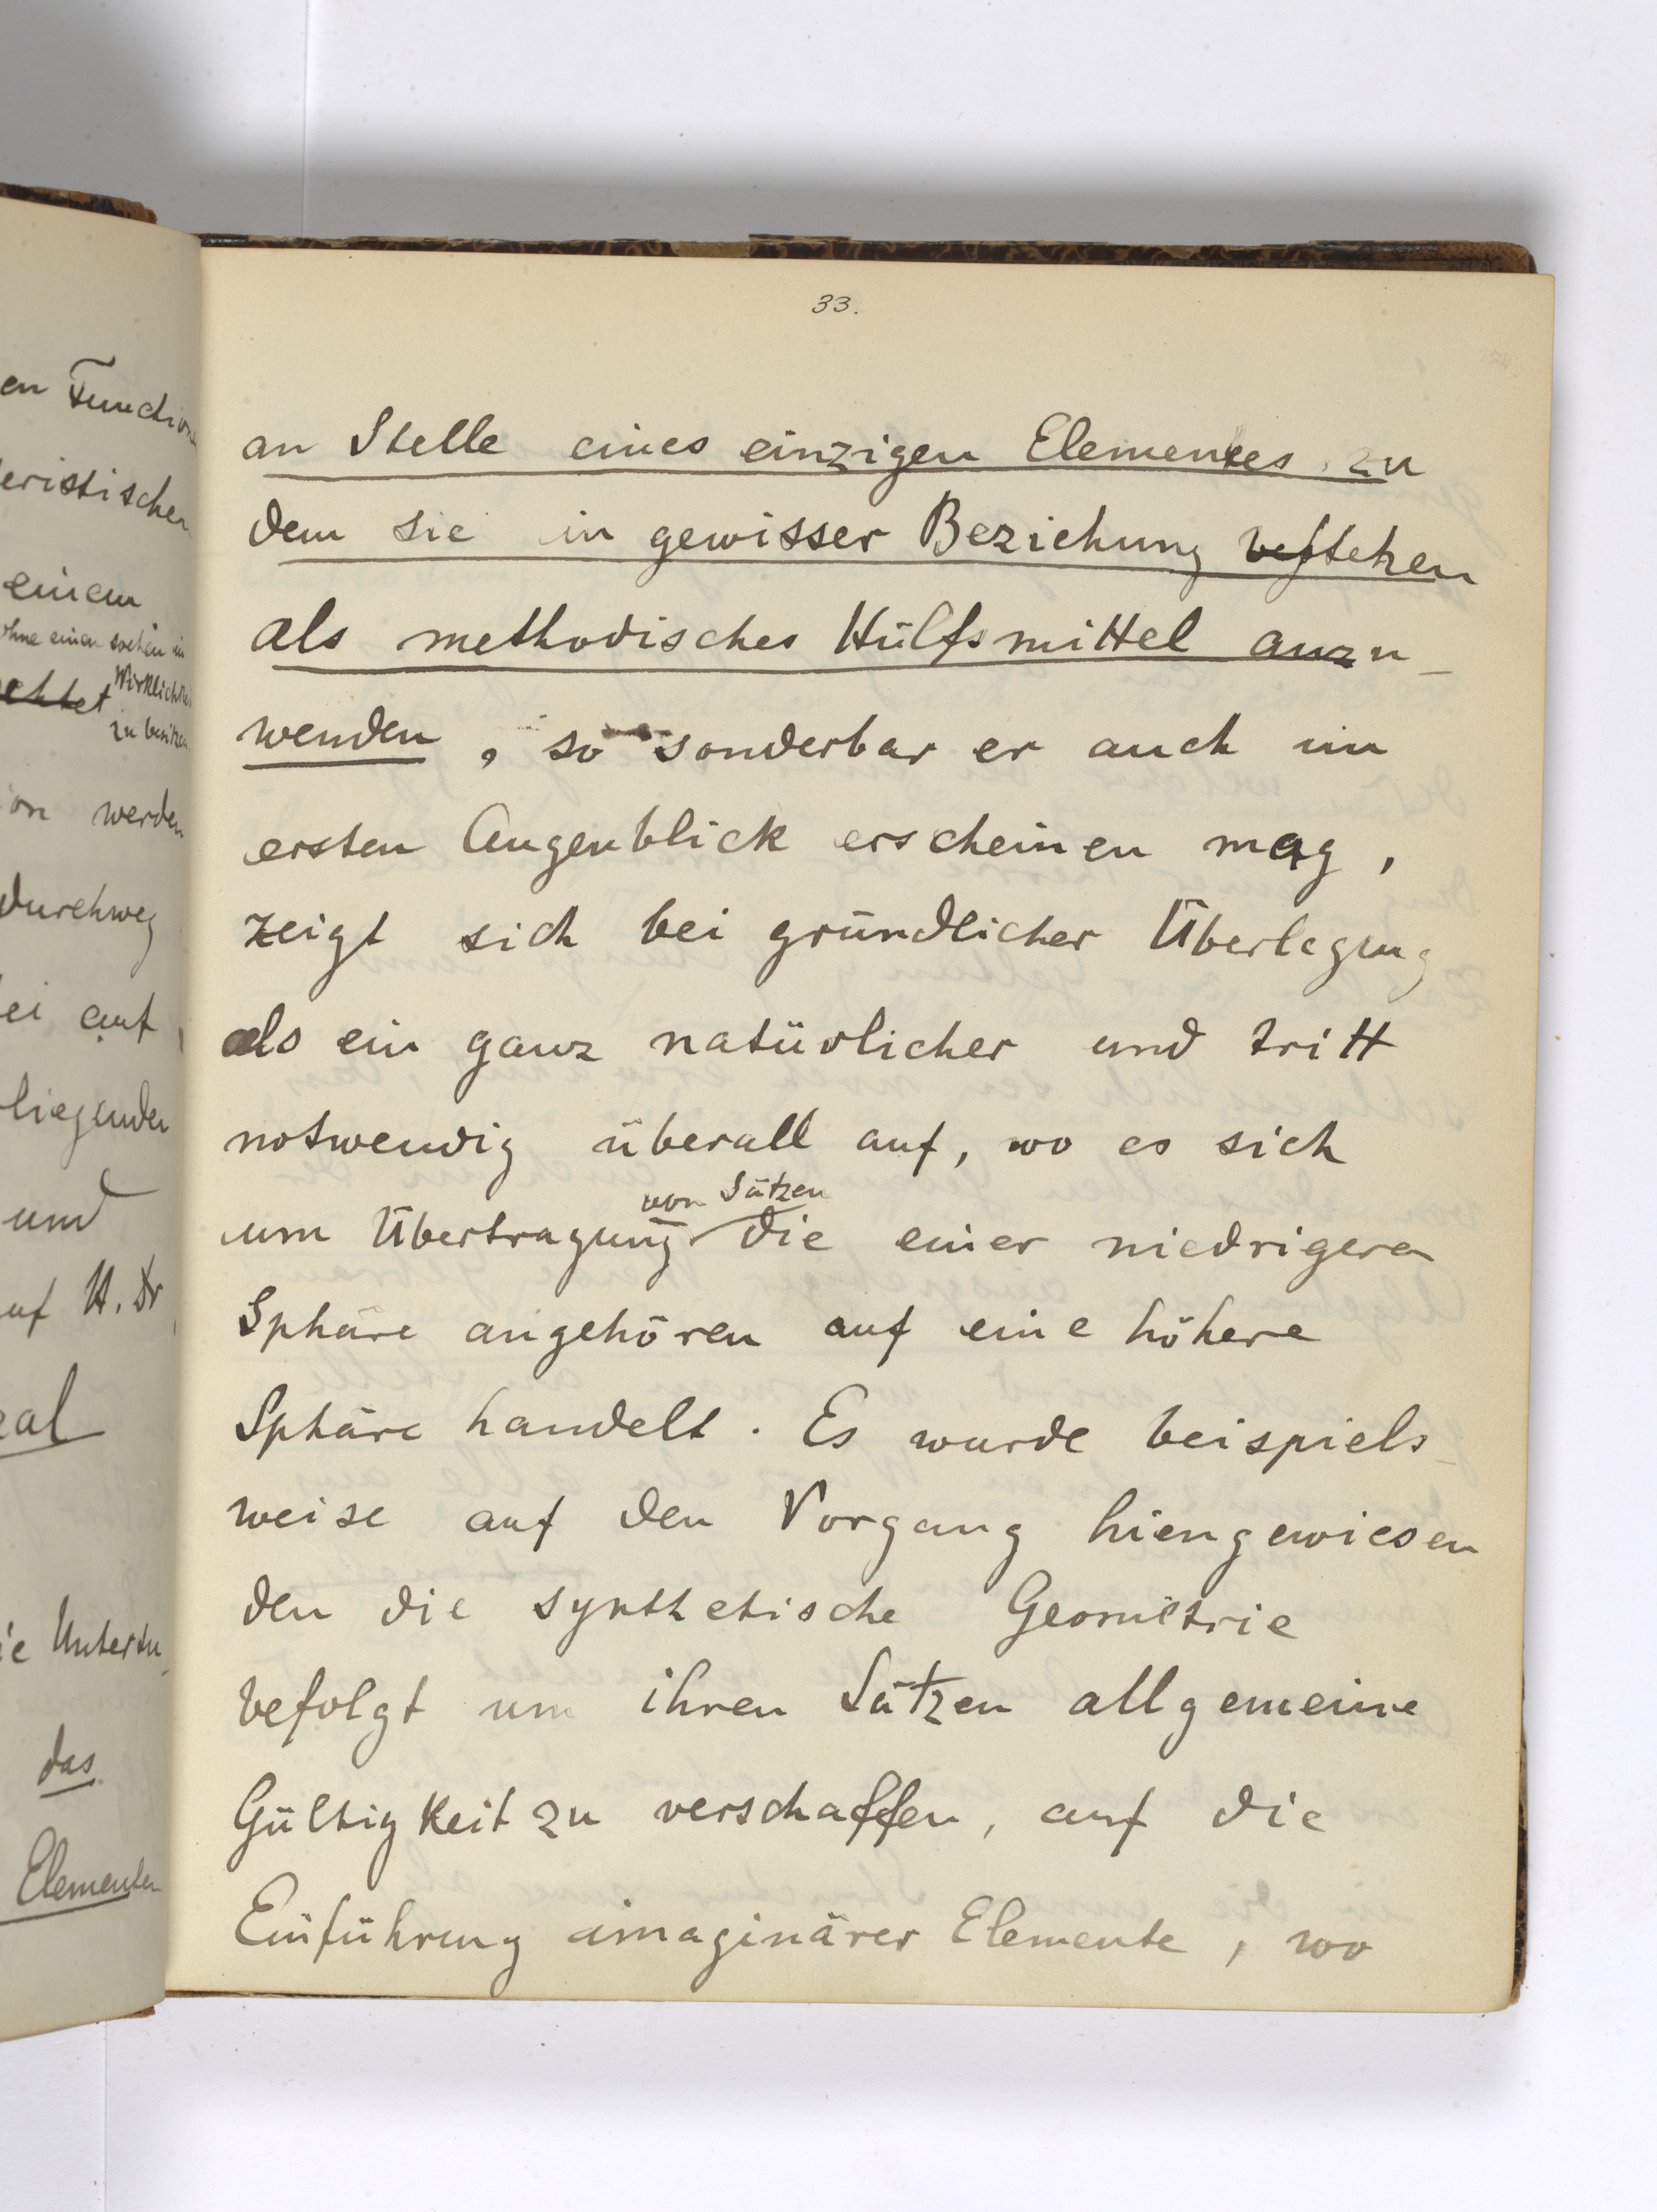 en Function
eristischen
einem
ohne einen solchen in
Wirklichkei
chtet
zu besitzen
ion werden
durchweg
ei auf
liegenden
und
uf U. Dr
eal
ie Untersu
das
Elementen
33.
an Stelle eines einzigen Elementes, zu
dem sie in gewisser Beziehung bestehen
als methodisches Hülfsmittel anzu-
wenden, so sonderbar er auch im
ersten Augenblick erscheinen mag,
zeigt sich bei gründlicher Überlegung
als ein ganz natürlicher und tritt
notwendig überall auf, wo es sich
von Sätzen
um Übertragung die einer niedrigeren
Sphäre angehören auf eine höhere
Sphäre handelt. Es wurde beispiels-
weise auf den Vorgang hiengewiesen
den die synthetische Geometrie
befolgt um ihren Sätzen allgemeine
Gültigkeit zu verschaffen, auf die
Einführung imaginärer Elemente, wo